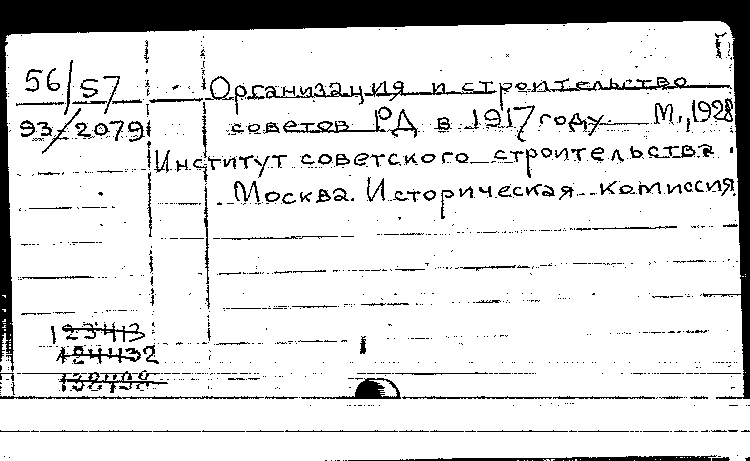 56/57 Организация и строительство
93/2079 советов РД в 1917 году. М., 1928
Институт советского строительства.
Москва. Историческая комиссия
123413
424432
138498